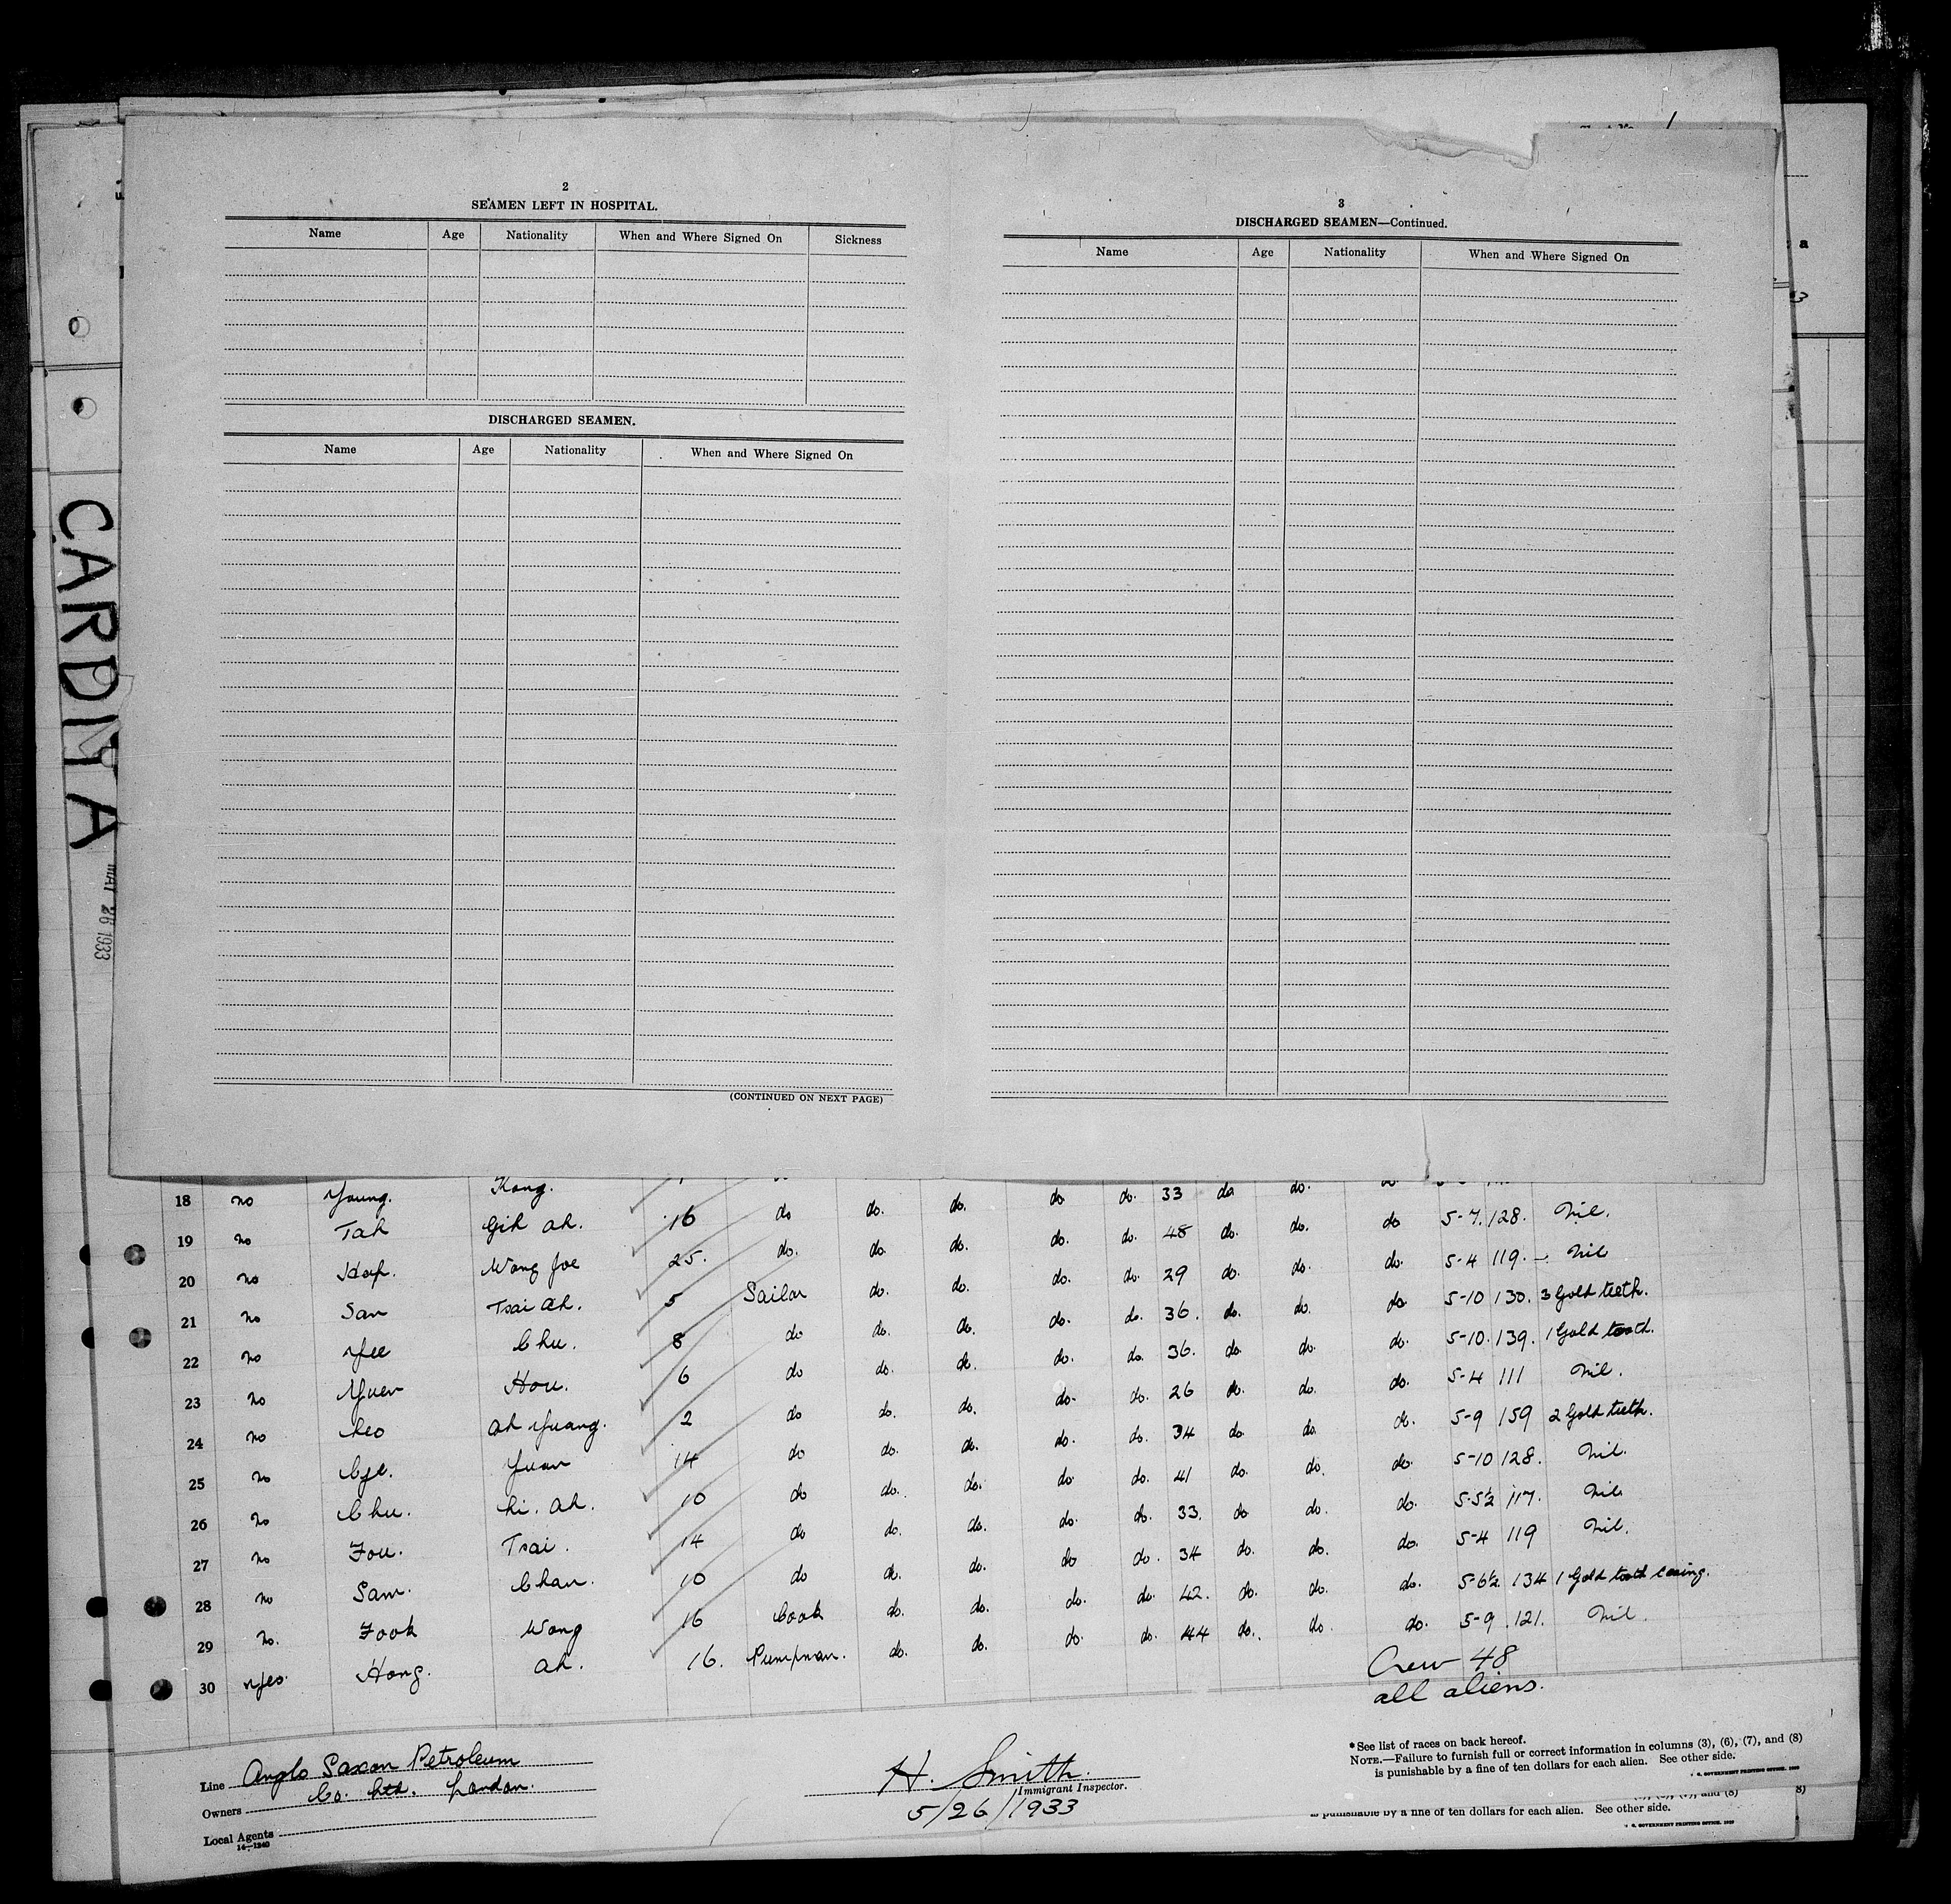 CARDINA
MAY 26 1933
2
SEAMEN LEFT IN HOSPITAL.
Name Age Nationality When and Where Signed On Sickness
DISCHARGED SEAMEN.
Name Age Nationality When and Where Signed On
(CONTINUED ON NEXT PAGE)
3
DISCHARGED SEAMEN—Continued.
Name Age Nationality When and Where Signed On
18 no Young. Kong.
19 no Tah Gih ah. 16 do do. do. do do. 33 do do. do 5-7. 128. Nil.
20 no Hop. Wong Joe 25. do. do. do. do. do. 48 do. do. do. 5-4 119. – Nil
21 no San Tsai ah. 5 Sailor do. do. do. do. 29 do. do. do 5-10 130. 3 Gold teeth.
22 no Yee Chu. 8 do do. do. do. do. 36. do. do. do. 5-10. 139. 1 Gold tooth.
23 no Yuen Hou. 6 do do. do. do. do. 36. do. do. do. 5-4 111 Nil.
24 no Leo ah Yuang. 2 do do. do. do. do. 26 do. do. do. 5-9 159 2 Gold teeth.
25 no Cye. Yuan 14 do do. do. do. do. 34 do. do. do. 5-10 128. Nil.
26 no Chu. Li. ah. 10 do do. do. do do. 41 do. do. do. 5-5½ 117. Nil
27 no Fou. Tsai. 14 do do. do. do. do. 33. do do. do. 5-4 119 Nil.
28 no Sam. Chan. 10 do do. do. do do. 34 do. do. do. 5-6½ 134 1 Gold tooth casing.
29 no. Fook Wong 16 Cook do. do. do. do. 42. do. do. do. 5-9 121. Nil.
30 Yes. Hong. ah. 16. Pumpman. do. do. do. do. 44 do. do.
Crew 48
all aliens.
Line Anglo Saxon Petroleum
Owners Co. Ltd. London.
Local Agents
14—1240
H. Smith.
Immigrant Inspector.
5/26/1933
* See list of races on back hereof.
NOTE.—Failure to furnish full or correct information in columns (3), (6), (7), and (8)
is punishable by a fine of ten dollars for each alien. See other side.
U. S. GOVERNMENT PRINTING OFFICE
and (8)
is punishable by a fine of ten dollars for each alien. See other side.
U. S. GOVERNMENT PRINTING OFFICE